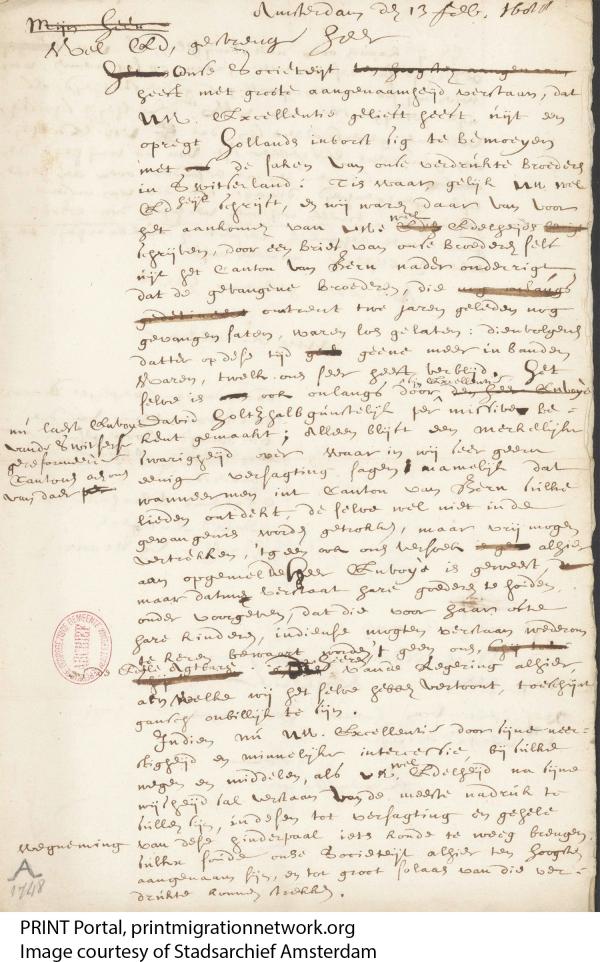 Amsterdam den 13 Feb. 16
Mijn Heer
Wel Ed, gestrenge Heer
Onse Societeijt
heeft met groote aangenaamheijd verstaan, dat
UW. Excellentie gelieft heeft, uijt een
opregt Hollands inborst sig te bemoeijen
met de saken van onse verdrukte broeders
in Switserland: Tis waar gelijk UW wel
Edh schrijft, en wij waren daar van voor
het aankomen van UWE wel Edelheijds
schrijven, door een brief van onse Broeders self
uijt het Canton van Bern nader onderrigt
dat de gevangene broederen, die
omtrent twe jaren geleden nog
gevangen saten, waren los gelaten: dienvolgens
datter op dese tijd geene meer in banden
waren, twelk ons seer heeft verblijd. Het
selve is ook onlangs door sijn Excellentie
David Holtzhalb gunstelijk per missive be-
kent gemaakt; alleen blijft een merkelijke
nu laest Envoye
vande Switserse
gereformeerde
Cantons aen ons
van daer
swarigheijd over waar in wij seer geern
eenige versagting sagen; namelijk dat
wanneermen int Canton van Bern sulke
lieden ontdekt, de selve wel niet in de
gevangenis worden getrokken, maar vrij mogen
vertrekken, 'tgeen ook ons versoek alhier
aan opgemelde Heer Envoye is geweest,
maar datmen verstaat hare goederen te houden,
onder voorgeven, dat die voor haar ofte
hare kinderen, indiense mogten verstaan wederom
te keren bewaart worden't geen ons,
de Edele Agtbare Heeren vande Regering alhier,
aan welke wij het selve hebben vertoont, toeschijnt
gansch onbillijk te sijn.
Indien nu UW. Excellentie door sijne neer-
stigheijd en minnelijke intercessie, bij sulke
wegen en middelen, als UE wel Edelheijd na sijne
wijsheijd sal verstaan van de meeste nadruk te
sullen sijn, in desen tot versagting en gehele
wegneming
van dese hinderpaal iets konde te weeg brengen,
sulks soude onse Societeijt alhier ten hoogsten
aangenaam sijn, en tot groot solaas van die ver-
drukte konnen strekken.
A
1748
PRINT Portal, printmigrationnetwork.org
Image courtesy of Stadsarchief Amsterdam